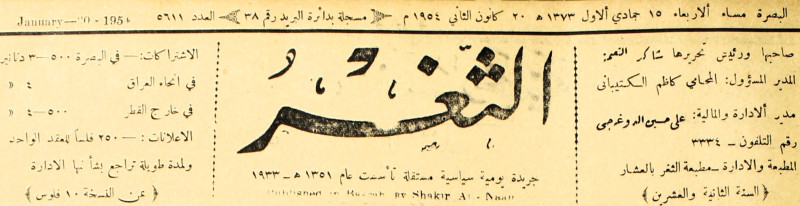 البصرة مساء الاربعاء ١٥ جمادي الاول ١٣٧٣ هـ ٢٠ كانون الثاني ١٩٥٤ م مسجلة بدائرة البريد رقم ٣٨ العدد ٥٦١١ January—20-195
صاحبها ورئيس تحريرها شاكر النعمة
المدير المسؤول: المحامي كاظم الكتيباني
مدير الادارة والمالية: علي حسين
رقم التلفون — ٣٣٣٤
المطبعة والادارة — مطبعة الثغر بالعشار
﴿ السنة الثانية والعشرين ﴾
الثغر
جريدة يومية سياسية مستقلة تأسست عام ١٣٥١ هـ — ١٩٣٣
Published in Basrah by Shakir Al-Naam
الاشتراكات: — في البصرة ٥٠٠—٣ دنانير
في انحاء العراق ٤ »
في خارج القطر ٥٠٠—٤ »
الاعلانات: — ٢٥٠ فلساً للعقد الواحد
ولمدة طويلة تراجع بشأنها الادارة
﴿ ثمن النسخة ١٠ فلوس ﴾